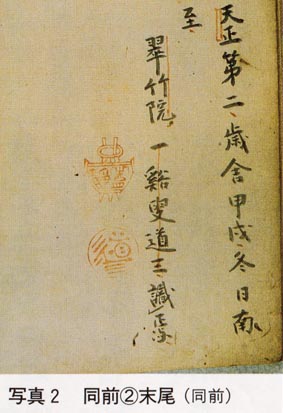 天正第二歳舎甲戌冬日南
至
翠竹院一谿叟道三識正慶
写真2 同前②末尾（同前）